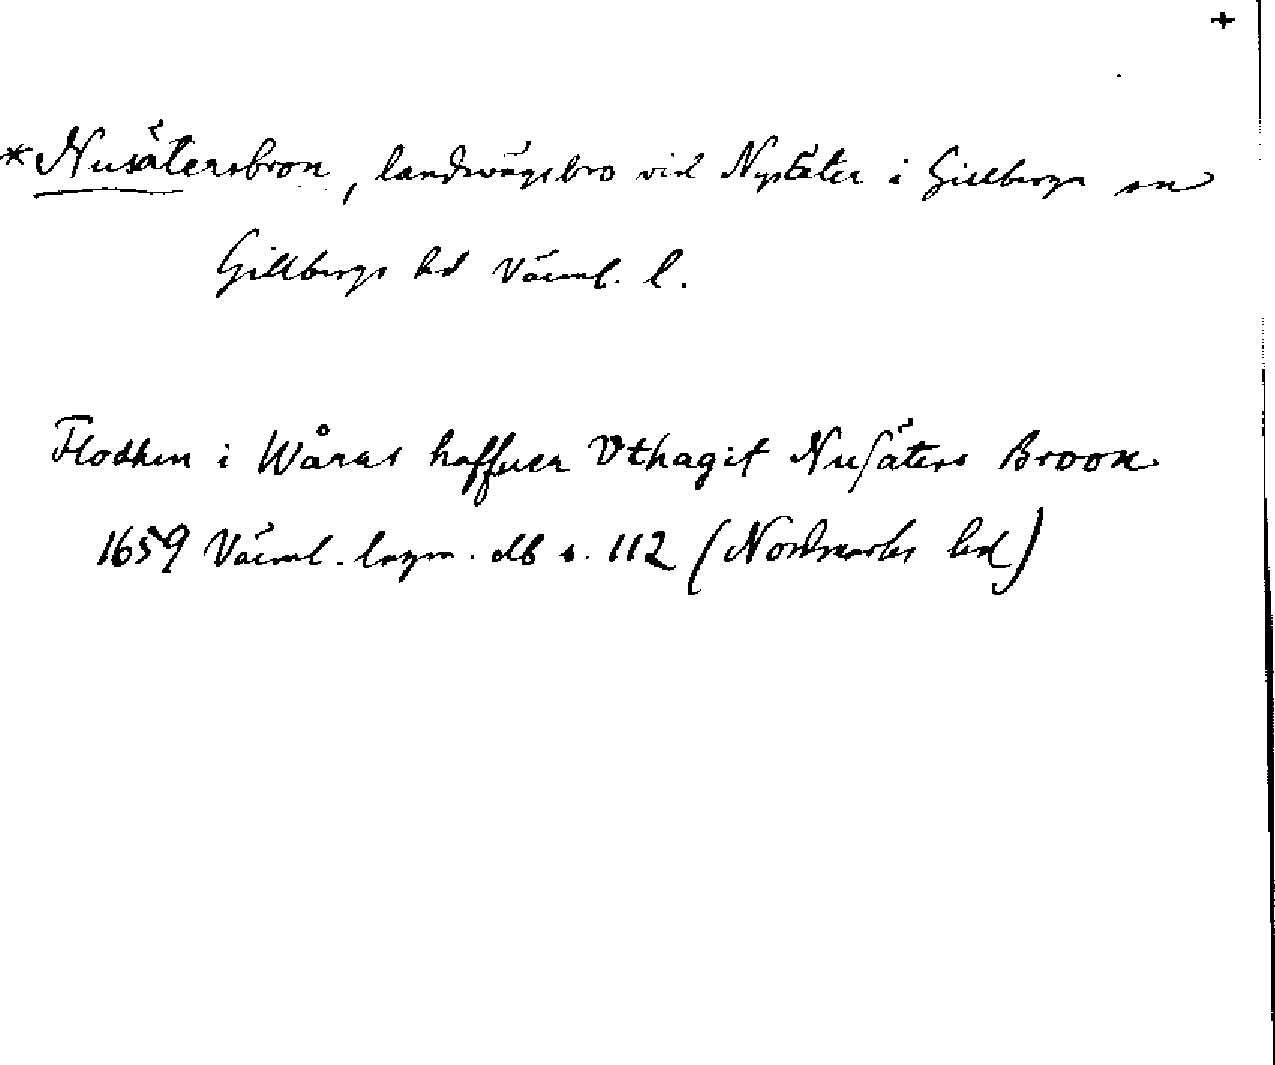 +
*Nusätersbron, landsvägsbro vid Nysäter i Gillbergs sn
Gillbergs hd Värml. l.
Flodhen i Wåras haffuer Vthagit Nusäters Broon
1659 Värml. lagm. db s. 112 (Nordmarks hd)